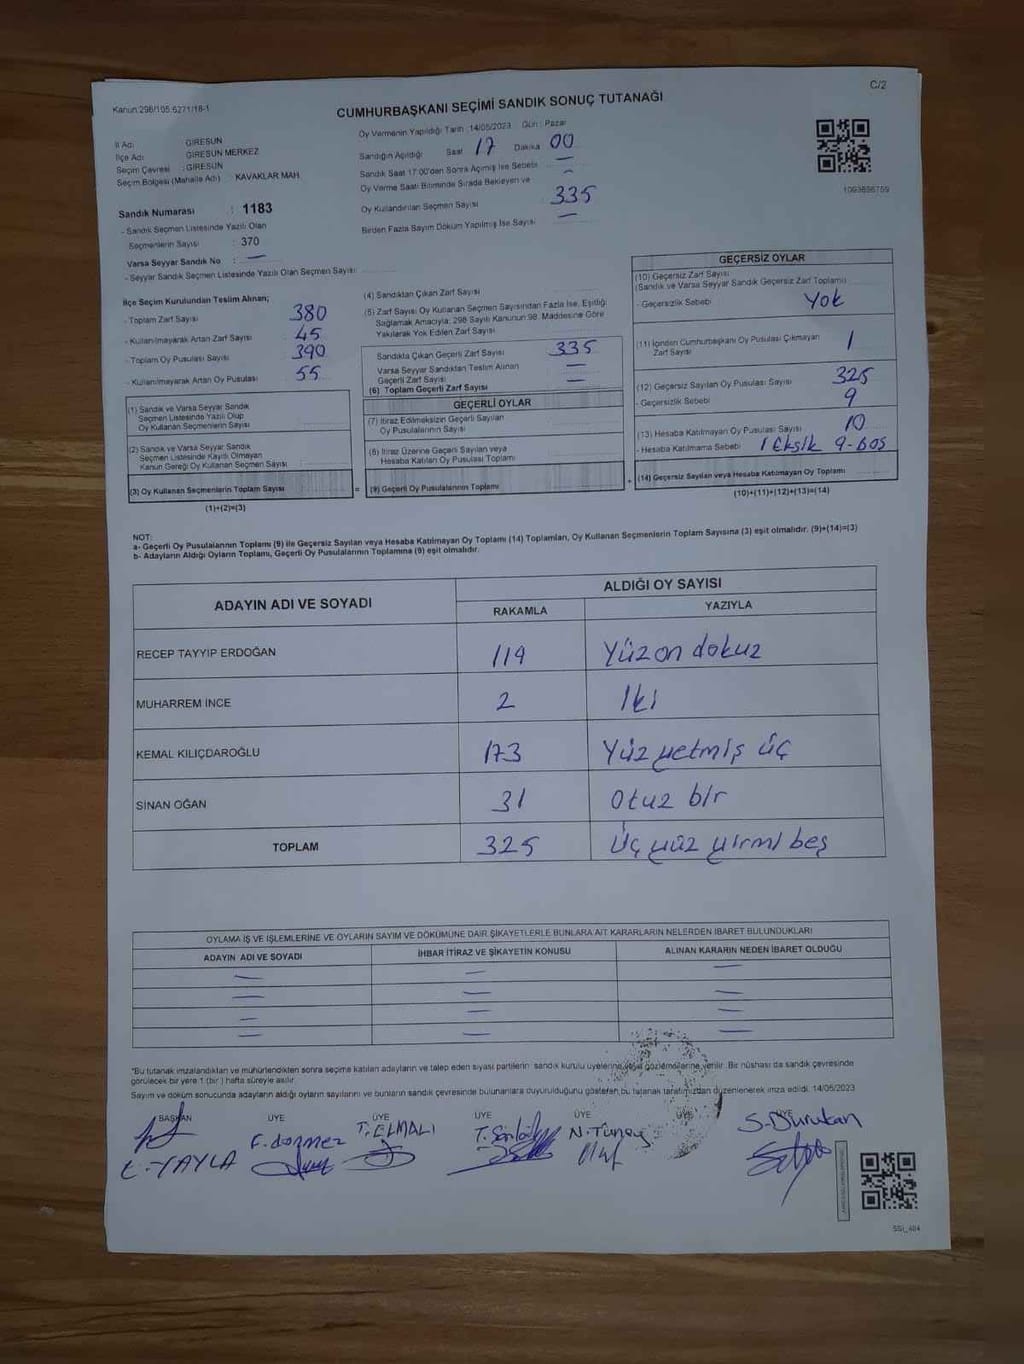 Kanun:298/105.6271/18-1
C/2
CUMHURBAŞKANI SEÇİMİ SANDIK SONUÇ TUTANAĞI
İl Adı : GİRESUN
İlçe Adı : GİRESUN MERKEZ
Seçim Çevresi : GİRESUN
Seçim Bölgesi (Mahalle Adı) : KAVAKLAR MAH.
Sandık Numarası : 1183
- Sandık Seçmen Listesinde Yazılı Olan
Seçmenlerin Sayısı : 370
Varsa Seyyar Sandık No : —
- Seyyar Sandık Seçmen Listesinde Yazılı Olan Seçmen Sayısı
Oy Vermenin Yapıldığı Tarih :14/05/2023 Gün : Pazar
Sandığın Açıldığı Saat 17 Dakika 00
Sandık Saat 17.00'den Sonra Açılmış İse Sebebi —
Oy Verme Saati Bitiminde Sırada Bekleyen ve
Oy Kullandırılan Seçmen Sayısı 335
Birden Fazla Sayım Döküm Yapılmış İse Sayısı —
1093856759
İlçe Seçim Kurulundan Teslim Alınan;
- Toplam Zarf Sayısı 380
- Kullanılmayarak Artan Zarf Sayısı 45
- Toplam Oy Pusulası Sayısı 390
- Kullanılmayarak Artan Oy Pusulası 55
(1) Sandık ve Varsa Seyyar Sandık
Seçmen Listesinde Yazılı Olup
Oy Kullanan Seçmenlerin Sayısı
(2) Sandık ve Varsa Seyyar Sandık
Seçmen Listesinde Kayıtlı Olmayan
Kanun Gereği Oy Kullanan Seçmen Sayısı
(3) Oy Kullanan Seçmenlerin Toplam Sayısı
(1)+(2)=(3)
(4) Sandıktan Çıkan Zarf Sayısı
(5) Zarf Sayısı Oy Kullanan Seçmen Sayısından Fazla İse, Eşitliği
Sağlamak Amacıyla, 298 Sayılı Kanunun 98. Maddesine Göre
Yakılarak Yok Edilen Zarf Sayısı
Sandıkta Çıkan Geçerli Zarf Sayısı 335
Varsa Seyyar Sandıktan Teslim Alınan
Geçerli Zarf Sayısı —
(6) Toplam Geçerli Zarf Sayısı —
GEÇERLİ OYLAR
(7) İtiraz Edilmeksizin Geçerli Sayılan
Oy Pusulalarının Sayısı
(8) İtiraz Üzerine Geçerli Sayılan veya
Hesaba Katılan Oy Pusulası Toplamı
= (9) Geçerli Oy Pusulalarının Toplamı
GEÇERSİZ OYLAR
(10) Geçersiz Zarf Sayısı
(Sandık ve Varsa Seyyar Sandık Geçersiz Zarf Toplamı)
- Geçersizlik Sebebi Yok
(11) İçinden Cumhurbaşkanı Oy Pusulası Çıkmayan
Zarf Sayısı 1
(12) Geçersiz Sayılan Oy Pusulası Sayısı 325
- Geçersizlik Sebebi 9
(13) Hesaba Katılmayan Oy Pusulası Sayısı 10
- Hesaba Katılmama Sebebi 1 Eksik 9-boş
+ (14) Geçersiz Sayılan veya Hesaba Katılmayan Oy Toplamı
(10)+(11)+(12)+(13)=(14)
NOT:
a- Geçerli Oy Pusulalarının Toplamı (9) ile Geçersiz Sayılan veya Hesaba Katılmayan Oy Toplamı (14) Toplamları, Oy Kullanan Seçmenlerin Toplam Sayısına (3) eşit olmalıdır. (9)+(14)=(3)
b- Adayların Aldığı Oyların Toplamı, Geçerli Oy Pusulalarının Toplamına (9) eşit olmalıdır.
ADAYIN ADI VE SOYADI
ALDIĞI OY SAYISI
RAKAMLA YAZIYLA
RECEP TAYYIP ERDOĞAN 119 Yüz on dokuz
MUHARREM İNCE 2 İki
KEMAL KILIÇDAROĞLU 173 Yüz yetmiş üç
SİNAN OĞAN 31 Otuz bir
TOPLAM 325 Üç yüz yirmi beş
OYLAMA İŞ VE İŞLEMLERİNE VE OYLARIN SAYIM VE DÖKÜMÜNE DAİR ŞİKAYETLERLE BUNLARA AİT KARARLARIN NELERDEN İBARET BULUNDUKLARI
ADAYIN ADI VE SOYADI İHBAR İTİRAZ VE ŞİKAYETİN KONUSU ALINAN KARARIN NEDEN İBARET OLDUĞU
— — —
— — —
— — —
— — —
*Bu tutanak imzalandıktan ve mühürlendikten sonra seçime katılan adayların ve talep eden siyasi partilerin sandık kurulu üyelerine veya gözlemcilerine verilir. Bir nüshası da sandık çevresinde
görülecek bir yere 1 (bir) hafta süreyle asılır.
Sayım ve döküm sonucunda adayların aldığı oyların sayılarını ve bunların sandık çevresinde bulunanlara duyurulduğunu gösteren bu tutanak tarafımızdan düzenlenerek imza edildi. 14/05/2023
BAŞKAN ÜYE ÜYE ÜYE ÜYE ÜYE ÜYE
E. YAYLA F. dönmez T. ELMALI N. Tunay S. Durukan
SSİ_484